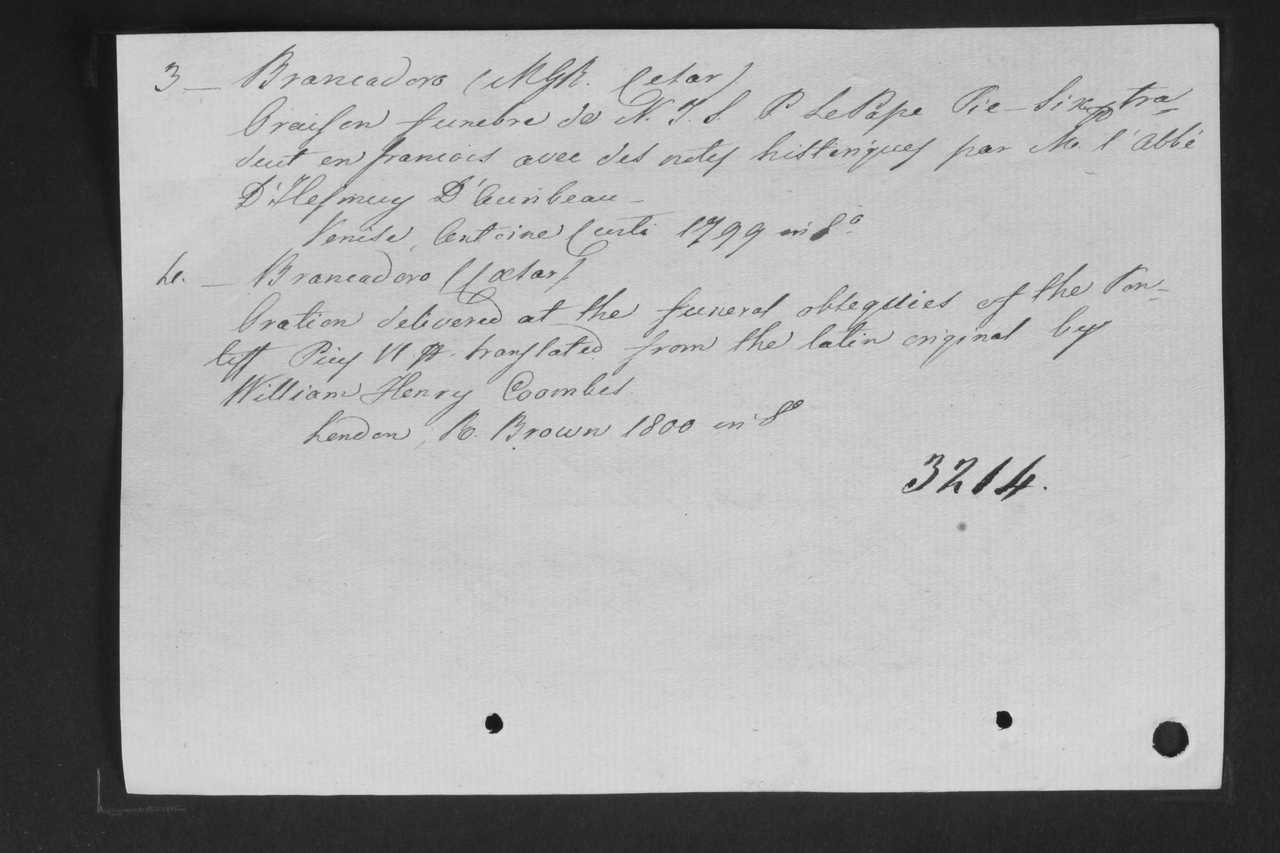 3 — Brancadoro (MGR. Cesar)
Oraison funebre de N. T. S. P. Le Pape Pie-Six, tra-
duit en francois avec des notes historiques par M. l'abbé
D'Hesmivy D'Auribeau —
Venise, Antoine Curti 1799 in 8.º
4. — Brancadoro (Cæsar)
Oration delivered at the funeral obsequies of the Pon-
tiff Pius VI translated from the latin original by
William Henry Coombes
London, R. Brown 1800 in 8º
3214.